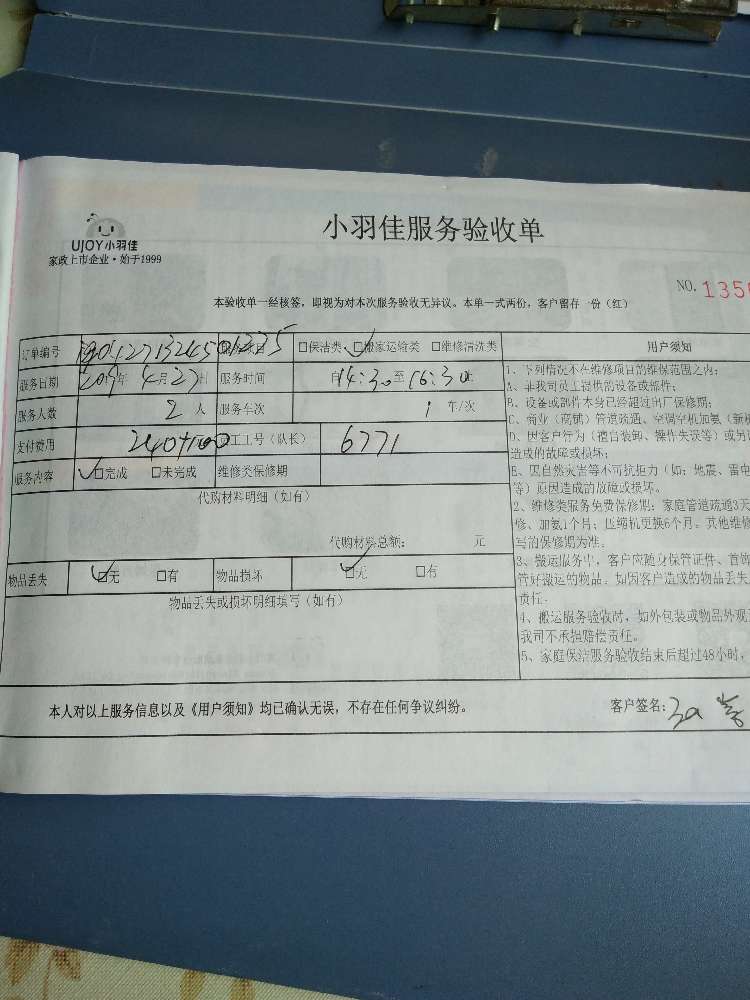 UJOY小羽佳
家政上市企业·始于1999
小羽佳服务验收单
NO. 135
本验收单一经核签，即视为对本次服务验收无异议。本单一式两份，客户留存一份（红）
订单编号 □保洁类 □搬家运输类 □维修清洗类
服务日期 2019年 4月27日 服务时间 自14:30至16:30止
服务人数 2人 服务车次 1 车/次
支付费用 工工号（队长） 6771
服务内容 □完成 □未完成 维修类保修期
代购材料明细（如有）
代购材料总额： 元
物品丢失 □无 □有 物品损坏 □无 □有
物品丢失或损坏明细填写（如有）
用户须知
1、下列情况不在维修项目的维保范围之内：
A、非我司员工提供的设备或部件；
B、设备或部件本身已经超过出厂保修期；
C、商业（商铺）管道疏通、空调空机加氨（新
D、因客户行为（擅自装卸、操作失误等）或另
造成的故障或损坏；
E、因自然灾害等不可抗拒力（如：地震、雷电
等）原因造成的故障或损坏。
2、维修类服务免费保修期：家庭管道疏通3天
修、加氨1个月；压缩机更换6个月。其他维修
写的保修期为准。
3、搬运服务中，客户应随身保管证件、首饰
管好搬运的物品。如因客户造成的物品丢失
责任。
4、搬运服务验收时，如外包装或物品外观
我司不承担赔偿责任。
5、家庭保洁服务验收结束后超过48小时，
本人对以上服务信息以及《用户须知》均已确认无误，不存在任何争议纠纷。
客户签名：